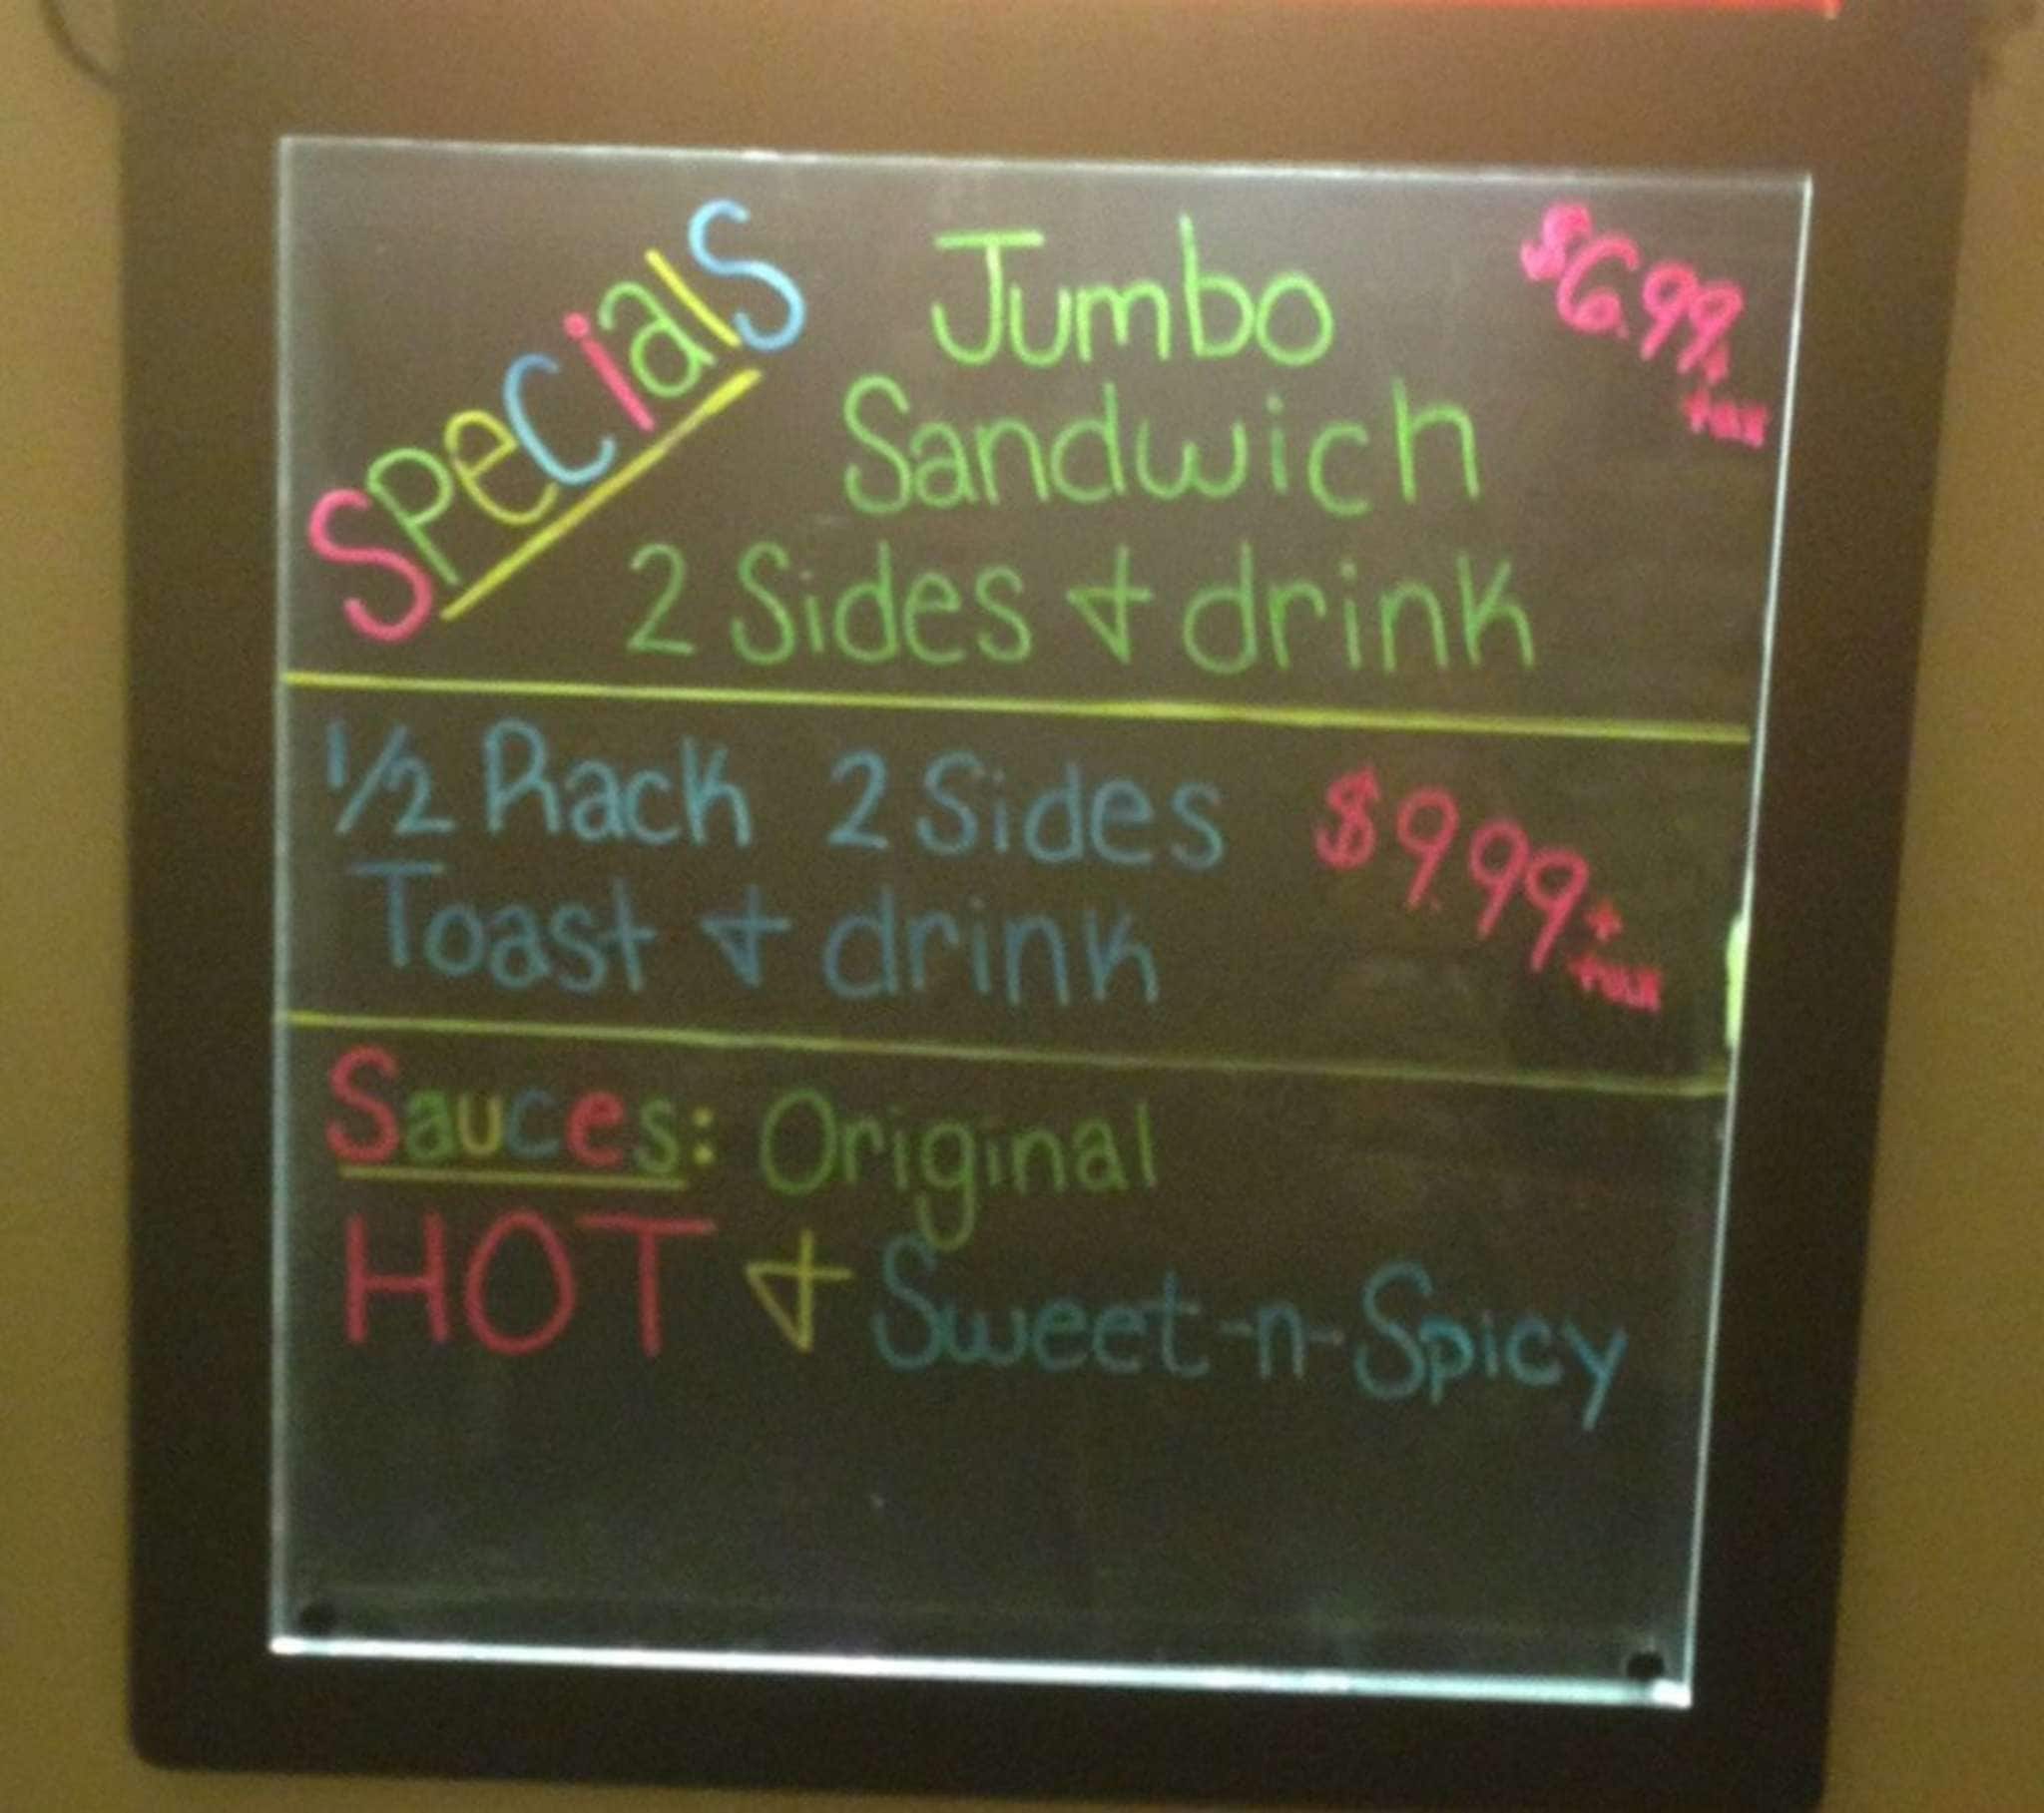 Specials
Jumbo
Sandwich
2 Sides + drink
$6.99 +
tax
1/2 Rack 2 Sides
Toast + drink
$9.99 +
tax
Sauces: Original
HOT + Sweet-n-Spicy